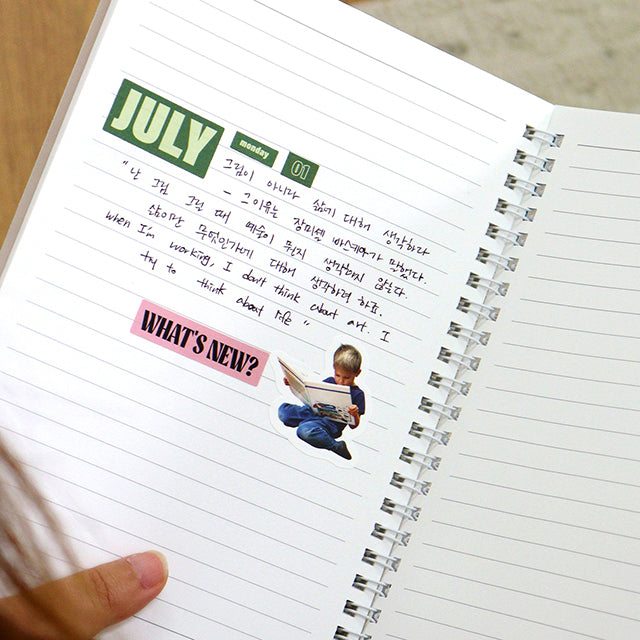 JULY
monday
01
그림이 아니라 삶에 대해 생각하라
- 그 이유를 장미쉘 바스키아가 말했다.
"난 그림 그릴 때 예술이 뭔지 생각하지 않는다.
삶이란 무엇인가에 대해 생각하려 하죠.
When I'm working, I don't think about art. I
try to think about life"
WHAT'S NEW?